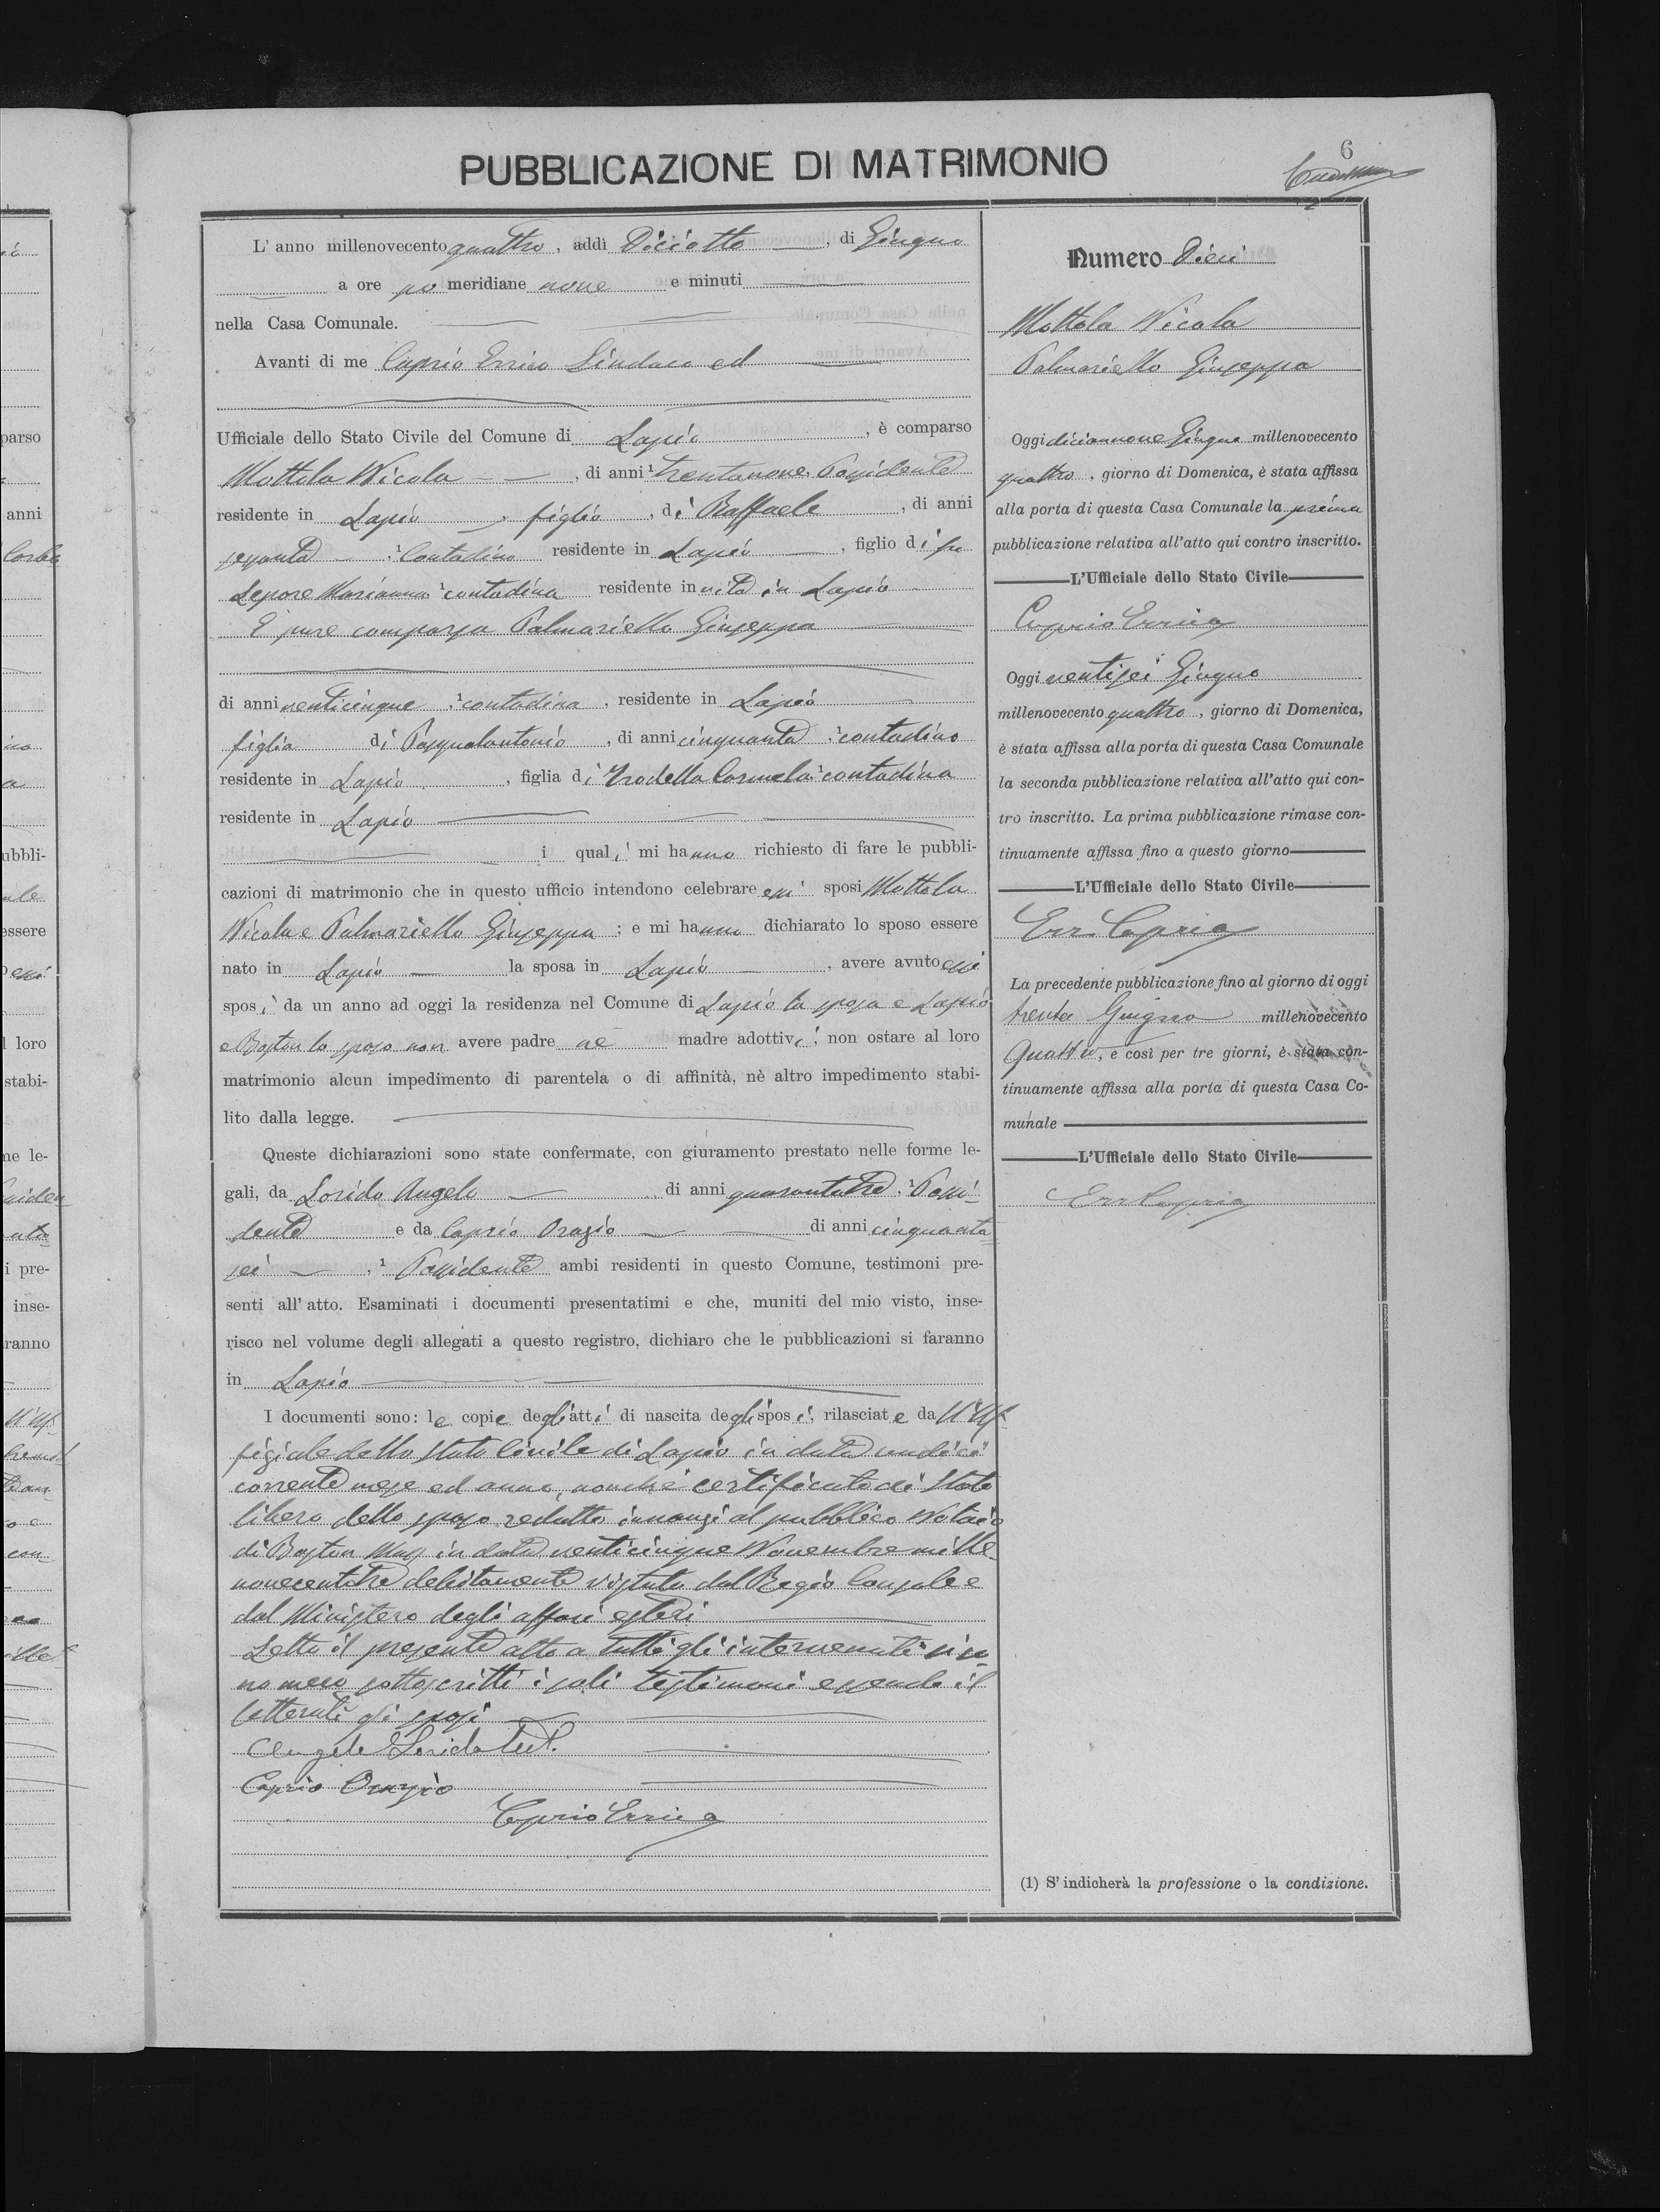 PUBBLICAZIONE DI MATRIMONIO
6
L' anno millenovecento quattro, addì Diciotto, di Giugno
a ore po meridiane nove e minuti
nella Casa Comunale.
Avanti di me Caprio Errico Sindaco ed
Ufficiale dello Stato Civile del Comune di Lapio, è comparso
Mottola Nicola, di anni ¹ trentanove, Possidente
residente in Lapio, figlio, di Raffaele, di anni
sessanta, ¹ Contadino residente in Lapio, figlio di fu
Lepore Marianna ¹ contadina residente in vita in Lapio
È pure comparsa Palmariello Giuseppa
di anni venticinque, ¹ contadina, residente in Lapio
figlia di Pasqualantonio, di anni cinquanta, ¹ contadino
residente in Lapio, figlia di Carmela ¹ contadina
residente in Lapio
i quali mi hanno richiesto di fare le pubbli-
cazioni di matrimonio che in questo ufficio intendono celebrare essi sposi Mottola
Nicola e Palmariello Giuseppa; e mi hanno dichiarato lo sposo essere
nato in Lapio la sposa in Lapio, avere avuto essi
sposi da un anno ad oggi la residenza nel Comune di Lapio la sposa e Lapio
e Boston lo sposo non avere padre nè madre adottivi; non ostare al loro
matrimonio alcun impedimento di parentela o di affinità, nè altro impedimento stabi-
lito dalla legge.
Queste dichiarazioni sono state confermate, con giuramento prestato nelle forme le-
gali, da Losido Angelo di anni quarantatre, ¹ Possi-
dente e da Caprio Orazio di anni cinquanta
sei, ¹ Possidente ambi residenti in questo Comune, testimoni pre-
senti all' atto. Esaminati i documenti presentatimi e che, muniti del mio visto, inse-
risco nel volume degli allegati a questo registro, dichiaro che le pubblicazioni si faranno
in Lapio
I documenti sono: le copie degli atti di nascita degli sposi, rilasciate da l'Uf
fiziale dello stato Civile di Lapio in data undici
corrente mese ed anno, nonché certificato di Stato
libero dello sposo redatto innanzi al pubblico Notaio
di Boston Mass in data venticinque Novembre mille
novecentotre debitamente vistato dal Regio Console e
dal Ministero degli affari esteri
Letto il presente atto a tutti gli intervenuti si so-
no meco sottoscritti i soli testimoni essendo il
letterati gli sposi
Angelo Losido test.
Caprio Orazio
Caprio Errico
Numero Dieci
Mottola Nicola
Palmariello Giuseppa
Oggi diciannove Giugno millenovecento
quattro, giorno di Domenica, è stata affissa
alla porta di questa Casa Comunale la prima
pubblicazione relativa all'atto qui contro inscritto.
L'Ufficiale dello Stato Civile
Caprio Errico
Oggi ventisei Giugno
millenovecento quattro, giorno di Domenica,
è stata affissa alla porta di questa Casa Comunale
la seconda pubblicazione relativa all'atto qui con-
tro inscritto. La prima pubblicazione rimase con-
tinuamente affissa fino a questo giorno
L'Ufficiale dello Stato Civile
Err. Caprio
La precedente pubblicazione fino al giorno di oggi
trenta Giugno millenovecento
Quattro, e così per tre giorni, è stata con-
tinuamente affissa alla porta di questa Casa Co-
munale
L'Ufficiale dello Stato Civile
Err Caprio
(1) S' indicherà la professione o la condizione.